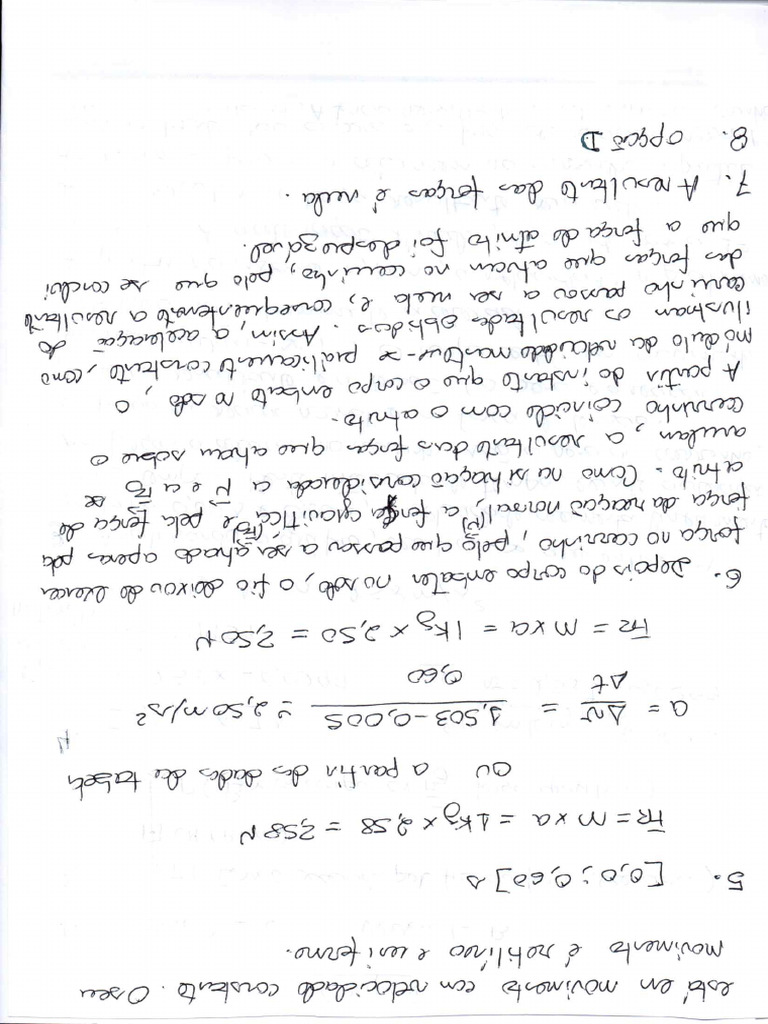 está em movimento com velocidade constante. O seu
movimento é retilíneo e uniforme.
5. [0,0 ; 0,60] s
FR = m x a = 1 kg x 2,58 = 2,58 N
ou a partir dos dados da tabela
a = Δv/Δt = 1,503 - 0,005 / 0,60 = 2,50 m/s²
FR = m x a = 1 kg x 2,50 = 2,50 N
6. Depois do corpo embater no solo, o fio deixou de exercer
força no carrinho, pelo que passou a ser atuado apenas pela
força da reação normal, a força gravítica, e pela força de
atrito. Como na situação considerada a N e a Fg se
anulam, a resultante das forças que atuam sobre o
carrinho coincide com o atrito.
A partir do instante que o corpo embate no solo, o
módulo da velocidade manteve-se praticamente constante, como
ilustram os resultados obtidos. Assim, a aceleração do
carrinho passou a ser nula e, consequentemente a resultante
das forças que atuam no carrinho, pelo que se conclui
que a força de atrito foi desprezável.
7. A resultante das forças é nula.
8. opção D